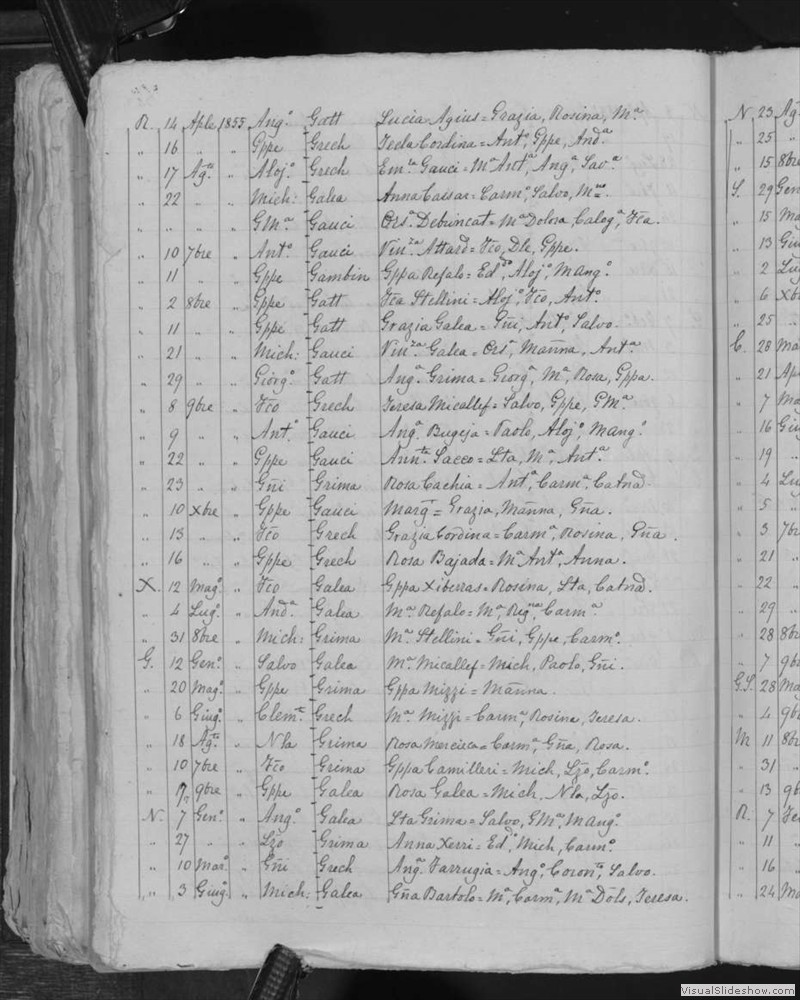 R. 14 Aple 1855 Ang.º Gatt Lucia Agius = Grazia, Rosina, M.ª
„ 16 „ „ Gppe Grech Tecla Cordina = Ant.º, Gppe, And.ª
„ 17 Ag.to „ Aloj.º Grech Em.la Gauci = M.ª Ant.ª, Ang.ª, Sav.ª
„ 22 „ „ Mich: Galea Anna Cassar = Carm.º, Salvo,
„ „ „ „ GM.ª Gauci Ors.ª Debuncat = M.ª Dolora, Calog.ª, Fca.
„ 10 7bre „ Ant.º Gauci Vin.za Attard = Fco, Dle, Gppe.
„ 11 „ „ Gppe Gambin Gppa Refalo = Ed.do, Aloj.º, Mang.º
„ 2 8bre „ Gppe Gatt Fca Stellini = Aloj.º, Fco, Ant.º
„ 11 „ „ Gppe Gatt Grazia Galea = Gñi, Ant.º, Salvo.
„ 21 „ „ Mich: Gauci Vin.za Galea = Ors.ª, Mañna, Ant.ª
„ 29 „ „ Giorg.º Gatt Ang.ª Grima = Giorg.ª, M.ª, Rosa, Gppa.
„ 8 9bre „ Fco Grech Teresa Micallef = Salvo, Gppe, GM.ª
„ 9 „ „ Ant.º Gauci Ang.ª Bugeja = Paolo, Aloj.º, Mang.º
„ 22 „ „ Gppe Gauci Ann.ta Sacco = Lta, M.ª, Ant.ª
„ 23 „ „ Gñi Grima Rosa Cachia = Ant.ª, Carm.ª, Catnª.
„ 10 Xbre „ Gppe Gauci Marg.ta = Grazia, Mañna, Gña.
„ 13 „ „ Fco Grech Grazia Cordina = Carm.ª, Rosina, Gña.
„ 16 „ „ Gppe Grech Rosa Bajada = M.ª Ant.ª, Anna.
X. 12 Mag.º „ Fco Galea Gppa Xiberras = Rosina, Lta, Catnª.
„ 4 Lug.º „ And.ª Galea M.ª Refalo = M.ª, Reg.na, Carm.ª
„ 31 8bre „ Mich: Grima M.ª Stellini = Gñi, Gppe, Carm.º
G. 12 Gen.º „ Salvo Galea M.ª Micallef = Mich, Paolo, Gñi.
„ 20 Mag.º „ Gppe Grima Gppa Mizzi = Mañna.
„ 6 Giug.º „ Clem.te Grech M.ª Mizzi = Carm.ª, Rosina, Teresa.
„ 18 Ag.to „ Nla Grima Rosa Mercieca = Carm.ª, Gña, Rosa.
„ 10 7bre „ Fco Grima Gppa Camilleri = Mich, Lzo, Carm.º
„ 17 9bre „ Gppe Galea Rosa Galea = Mich, Nla, Lzo.
N. 7 Gen.º „ Ang.º Galea Lta Grima = Salvo, GM.ª, Mang.º
„ 27 „ „ Lzo Grima Anna Xerri = Ed.do, Mich, Carm.º
„ 10 Mar.º „ Gñi Grech Ang.ª Farrugia = Ang.º, Coron.to, Salvo.
„ 3 Giug.º „ Mich: Galea Gña Bartolo = M.ª, Carm.ª, M.ª Dols, Teresa.
N. 23 Ag
„ 25 „
„ 15 8bre
S. 29 Gen
„ 15 Ma
„ 13 Giu
„ 2 Lug
„ 6 Xbr
„ 25 „
C. 28 Ma
„ 21 Ap
„ 7 Ma
„ 16 Giu
„ 19 „
„ 4 Lu
„ 5 „
„ 3 7br
„ 21 „
„ 22 „
„ 29 „
„ 28 8b
„ 7 9b
G.S. 28 Ma
„ 4 9b
M 11 8b
„ 31 „
„ 13 9b
R. 7 Fe
„ 11 „
„ 16 „
„ 24 Ma
VisualSlideshow.com